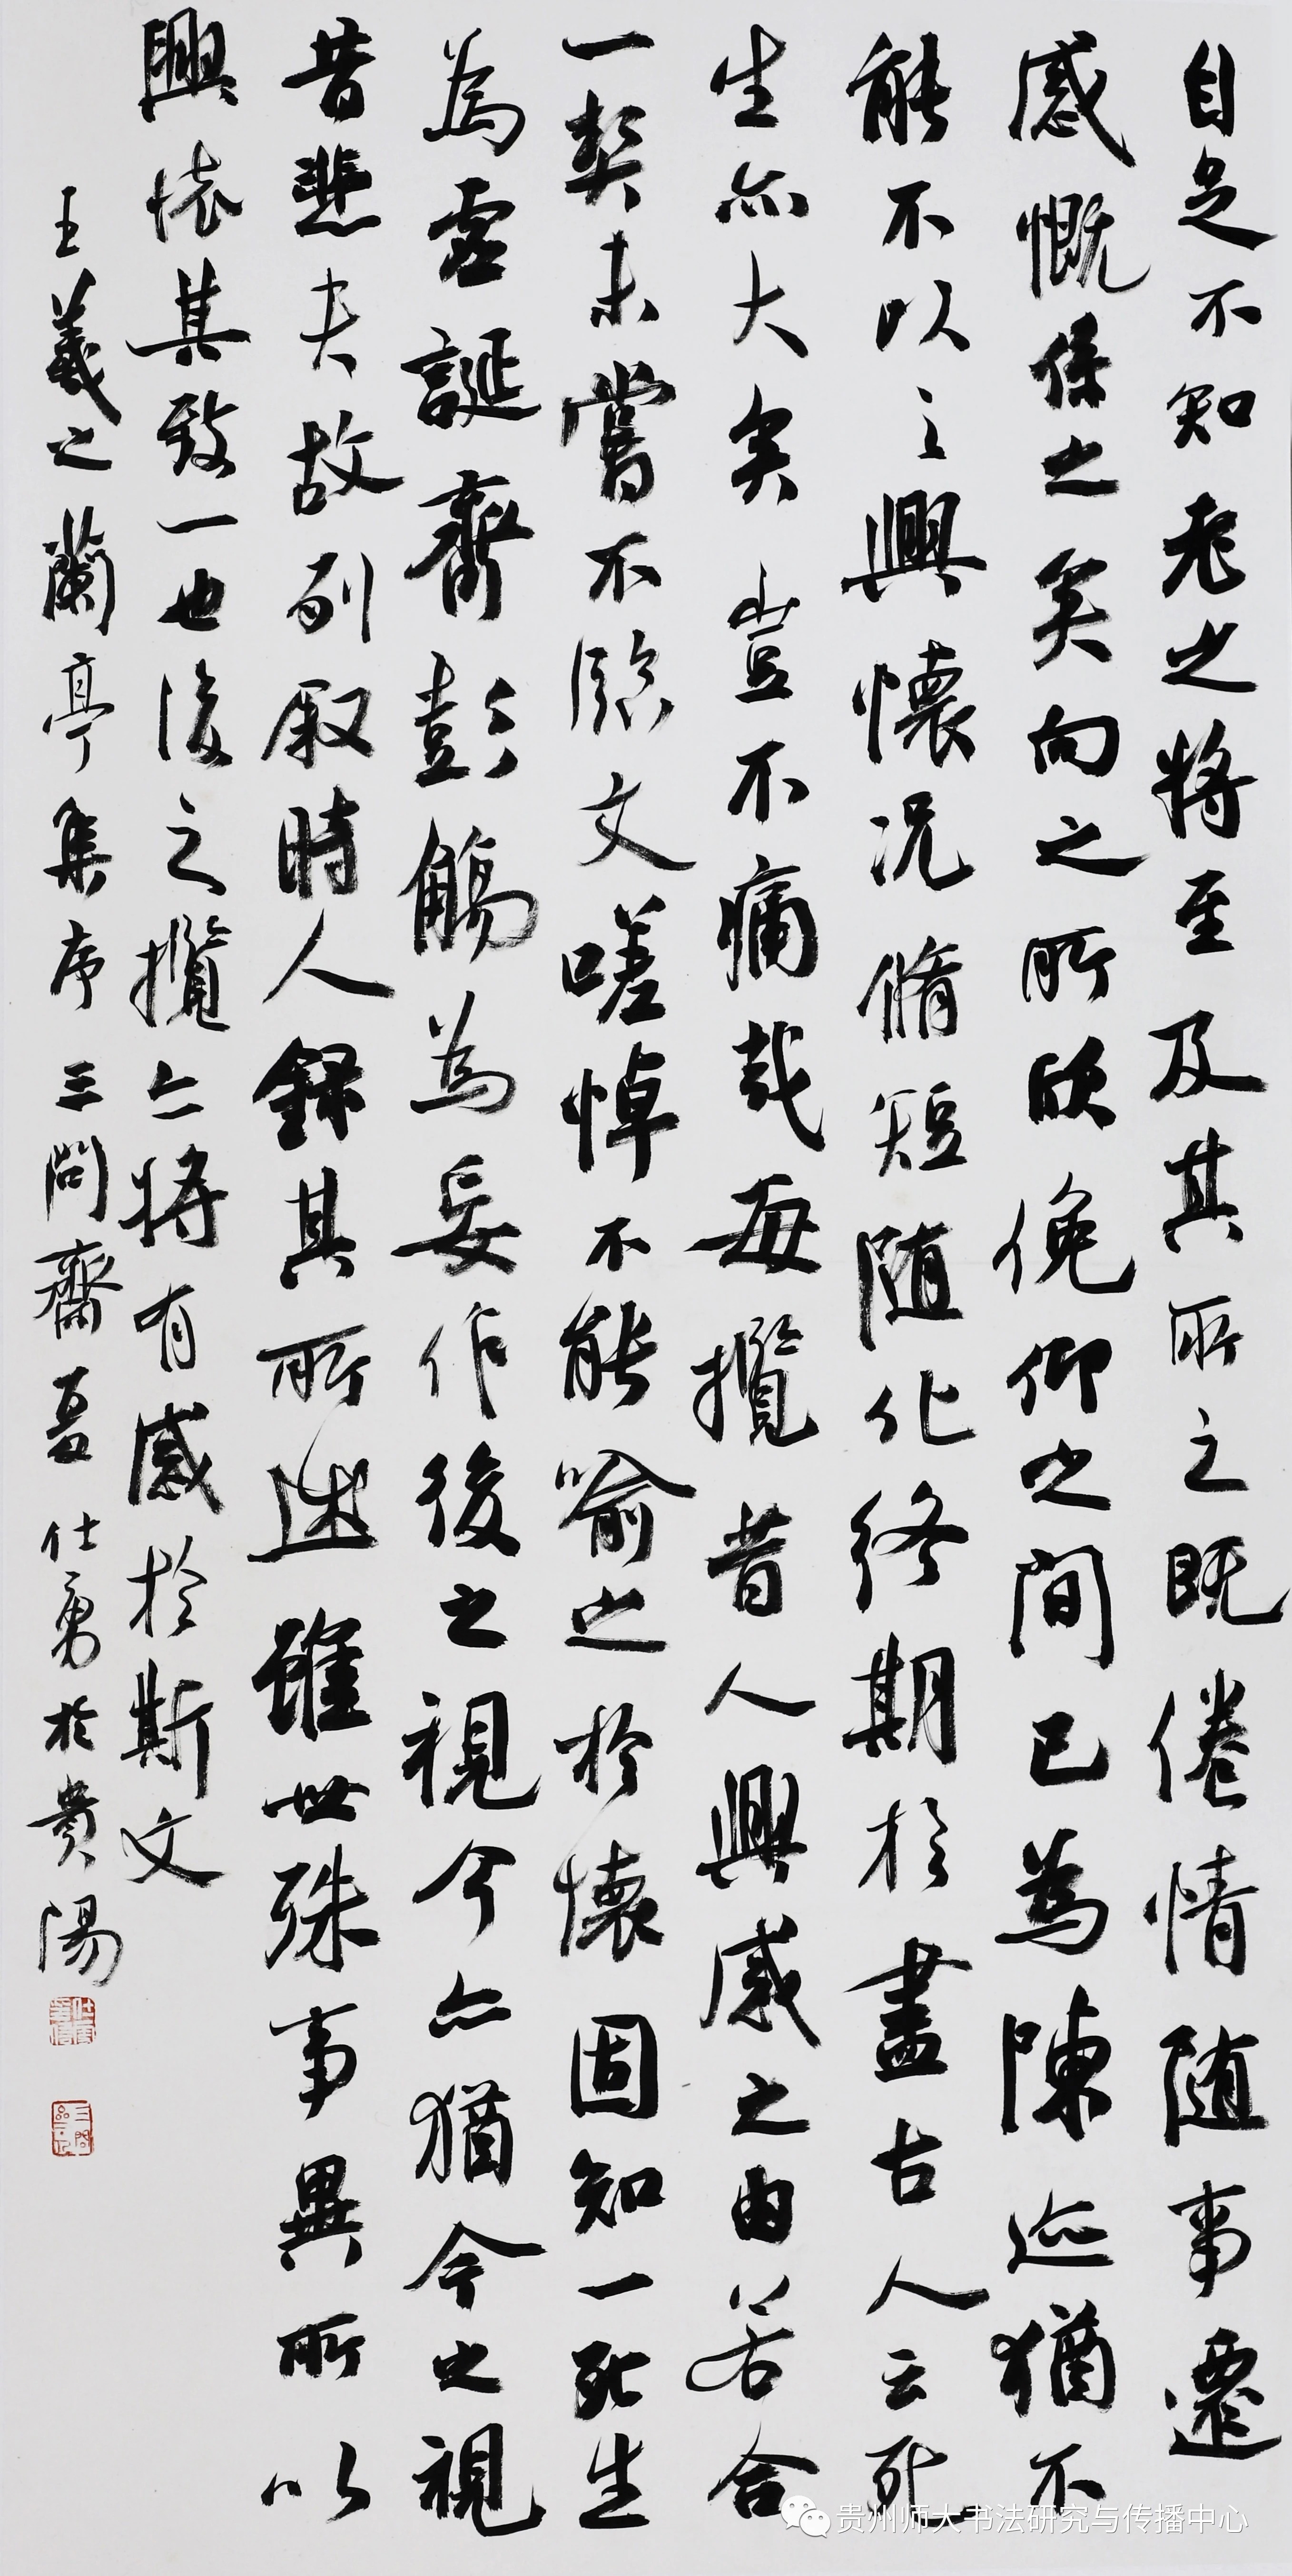 自足不知老之將至及其所之既倦情随事遷
感慨係之矣向之所欣俛仰之間已為陳迹猶不
能不以之興懷况脩短随化終期於盡古人云死
生亦大矣豈不痛哉每攬昔人興感之由若合
一契未嘗不臨文嗟悼不能喻之於懷固知一死生
為虛誕齊彭觴為妄作後之視今亦猶今之視
昔悲夫故列叙時人錄其所述雖世殊事異所以
興懷其致一也後之攬亦將有感於斯文
王羲之蘭亭集序三問齋夏仕勇於貴陽
贵州师大书法研究与传播中心